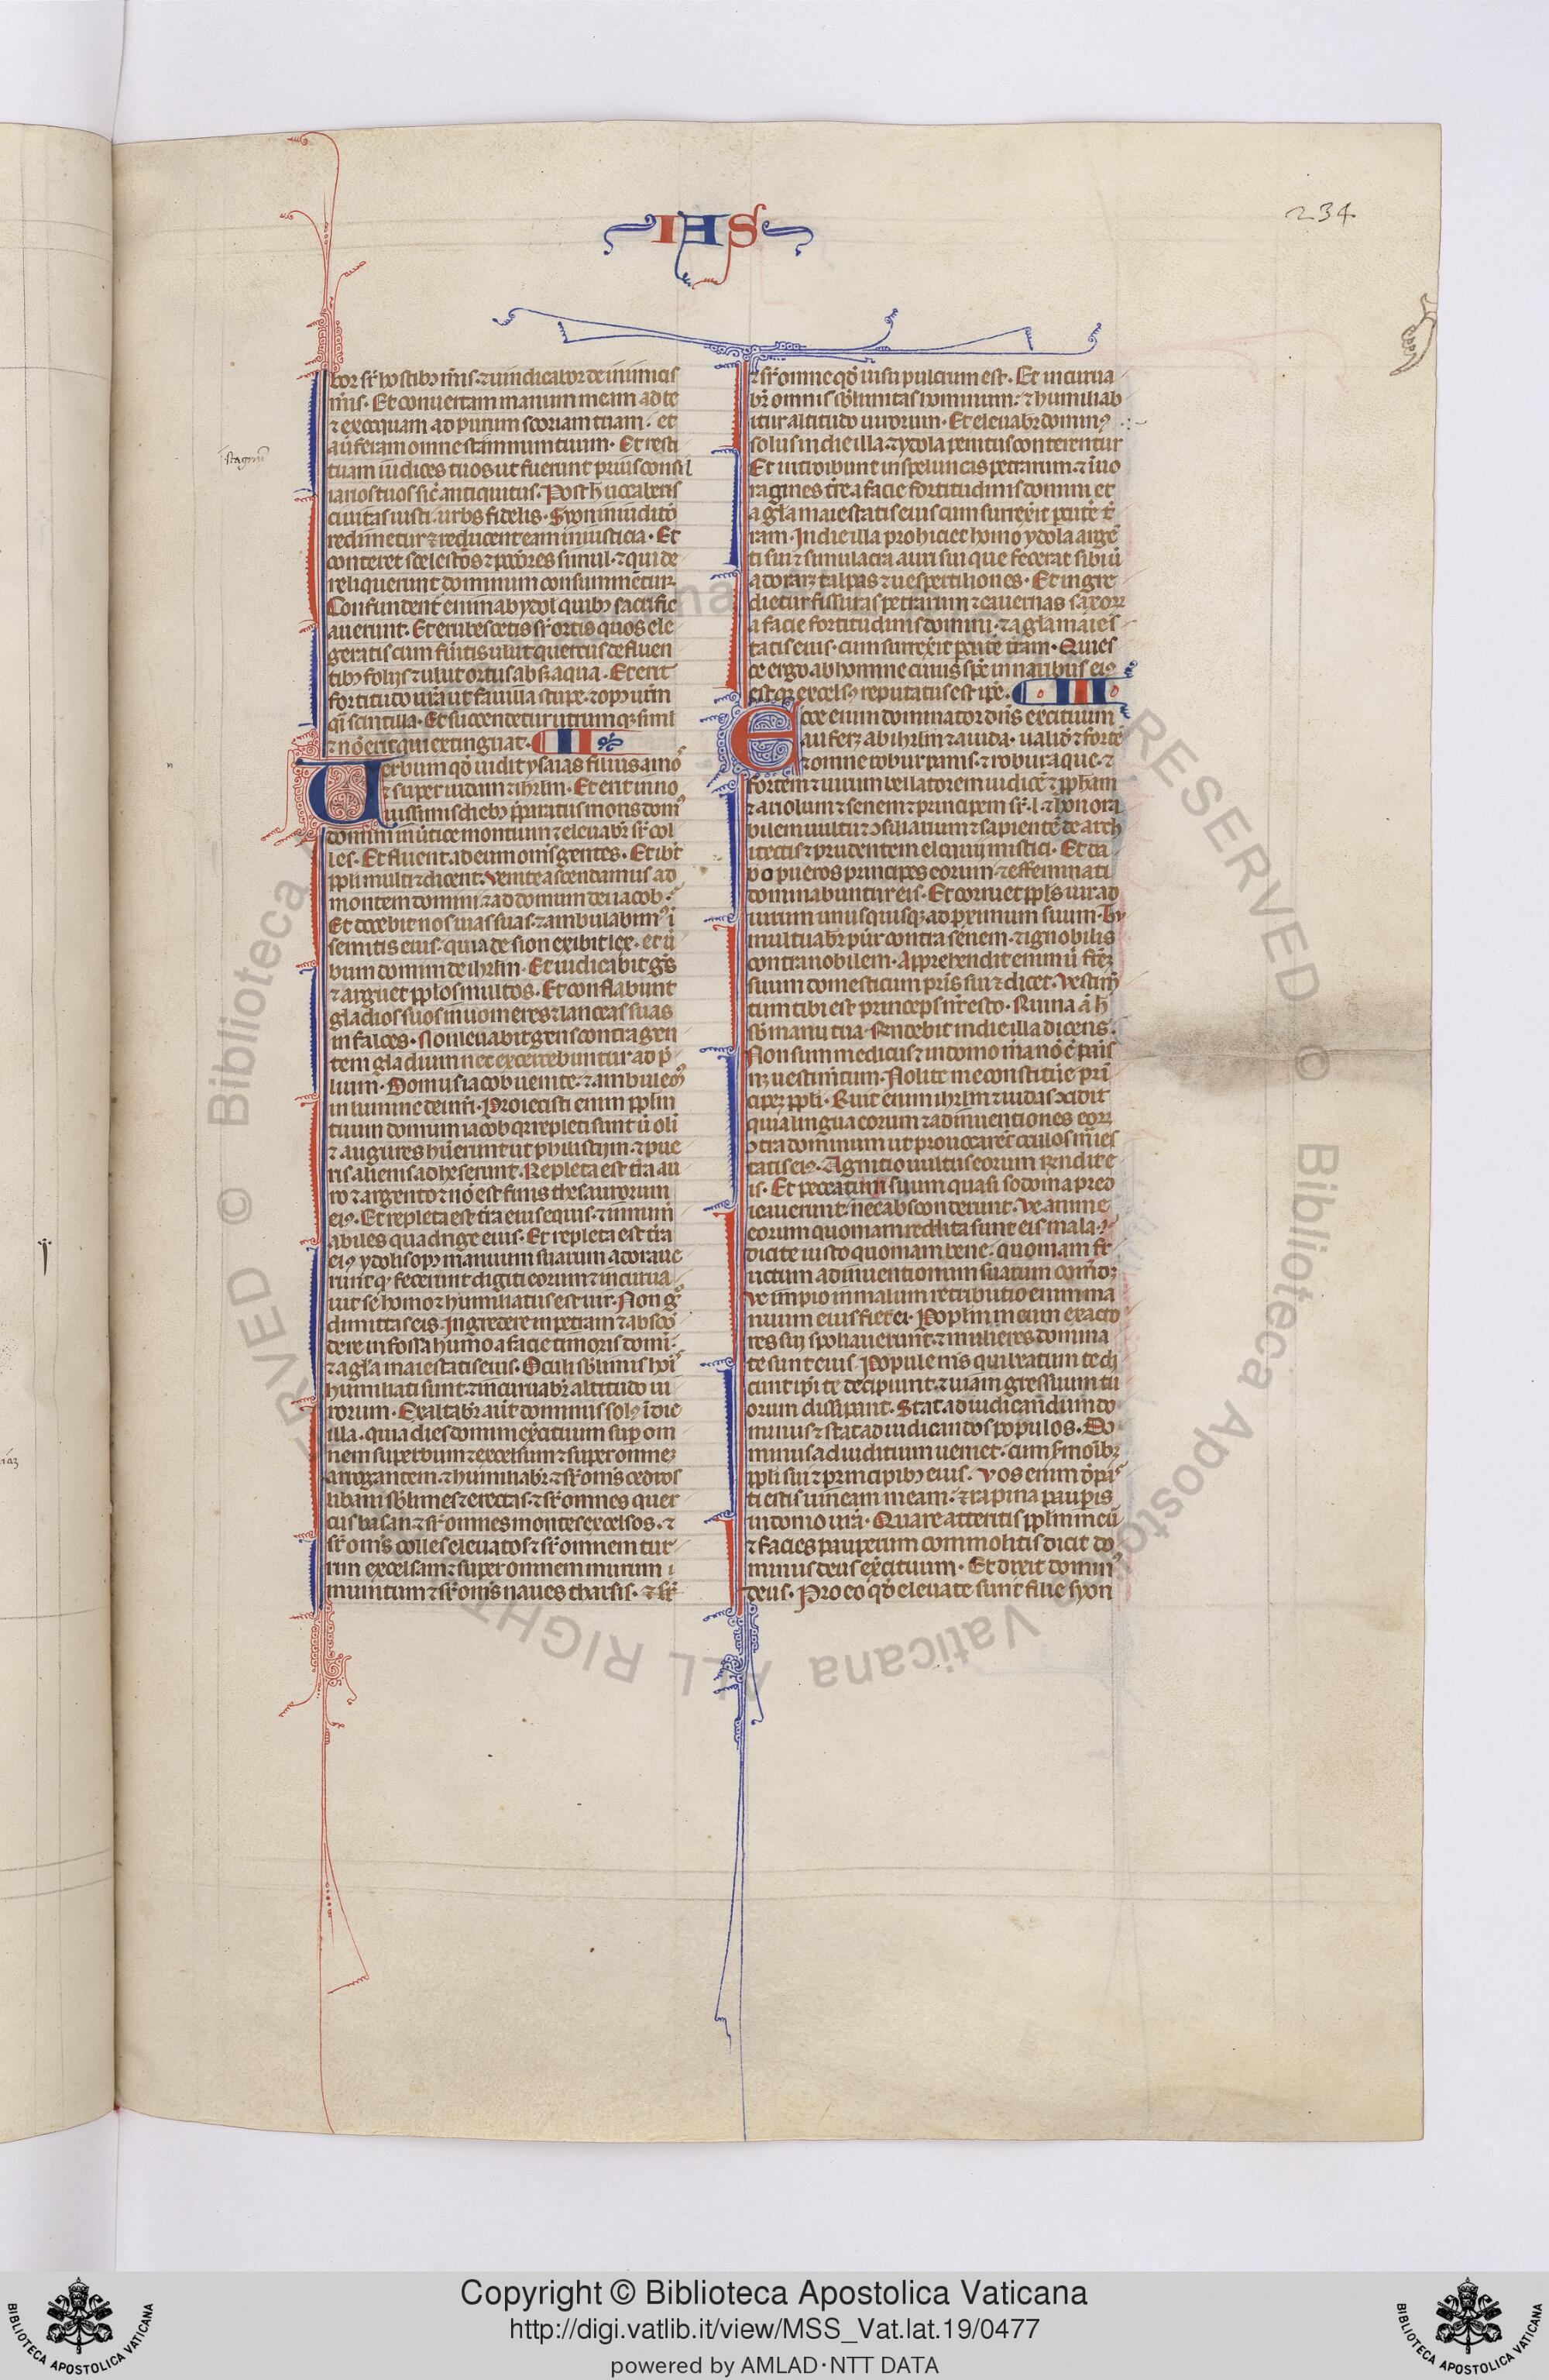 IAS
234
bor sr̄ hostibȝ m̄is. ⁊ uindicabor de inimicis
m̄is. Et conuertam manum meam ad te
⁊ excoquam ad purum scoriam tuam. et
auferam omne stannum tuum. Et resti
tuam iudices tuos ut fuerunt prius consil
iarios tuos sic̄ antiquitus. Post h̄ uocaberis
ciuitas iusti. urbs fidelis. Syon in iuditō
redimetur ⁊ reducent eam in iusticia. Et
conteret scelestos ⁊ pctōres simul. ⁊ qui de
reliquerunt dominum consummētur.
Confundent̄ enim ab ydol̄ quibȝ sacrific
auerunt. Et erubescetis sr̄ ortis quos ele
geratis cum fūitis uᵉlut quercus defluen
tibȝ folijs ⁊ uᵉlut ortus absqȝ aqua. Et erit
fortitudo ur̄a ut fauilla stupe. ⁊ opȝ ur̄m
qī scintilla. Et succendetur utrumqȝ simł
⁊ nō erit qui extinguat.
Uerbum qō uidit ysaias filius amō
s super iudam ⁊ ihrlm. Et erit in no
uissimis diebȝ p̄paratus mons dom'
domini in ūtice montium ⁊ eleuabr̄ sr̄ col
les. Et fluent ad eum om̄s gentes. Et ibt̄
ppl̄i multi ⁊ dicent. Venite ascendamus ad
montem domini ⁊ ad domum dei iacob.
Et docebit nos uias suas. ⁊ ambulabim' ī
semitis eius. quia de sion exibit lex. et ū
bum domini de ihrlm. Et iudicabit gēs
⁊ arguet ppl̄os multos. Et conflabunt
gladios suos in uomeres ⁊ lanceas suas
in falces. Non leuabit gens contra gen
tem gladium nec exercebuntur ad p̄
lium. Domus iacob uenite. ⁊ ambulem'
in lumine dei nr̄i. Proiecisti enim ppl̄m
tuum domum iacob qr̄ repleti sunt ū oli
⁊ augures hūerunt ut philistijm. ⁊ pue
ris alienis adheserunt. Repleta est tr̄a au
ro ⁊ argento ⁊ nō est finis thesaurorum
ei'. Et repleta est tr̄a eius equis. ⁊ innum̄
abiles quadrige eius. Et repleta est tr̄a
ei' ydolis. opȝ manuum suarum adoraue
runt qd̄ fecerunt digiti eorum ⁊ incurua
uit se homo ⁊ humiliatus est uir. Non g°
dimittas eis. Ingredere in petram ⁊ abscō
dere in fossa humo a facie timoris domī.
⁊ a gl̄a maiestatis eius. Oculi sb̄limis hoīs
humiliati sunt. ⁊ incuruabr̄ altitudo ui
rorum. Exaltabr̄ aūt dominus sol' ī die
illa. quia dies domini exercituum sup om
nem superbum ⁊ excelsum ⁊ super omnez
arrogantem. ⁊ humiliabr̄. ⁊ sr̄ om̄s cedros
libani sb̄limes ⁊ erectas. ⁊ sr̄ omnes quer
cus basan. ⁊ sr̄ omnes montes excelsos. ⁊
sr̄ om̄s colles eleuatos ⁊ sr̄ omnem tur
rim excelsam. ⁊ super omnem murum
munitum ⁊ sr̄ om̄s naues tharsis. ⁊ sr̄
⁊ sr̄ omne qō uisu pulcrum est. Et incurua
br̄ omnis sb̄limitas hominum. ⁊ humiliab
itur altitudo uirorum. Et eleuabr̄ domin'
solus in die illa. ⁊ ydola penitus conterentur
Et introibunt in speluncas petrarum. ⁊ ī uo
ragines tr̄e a facie fortitudinis domini et
a gl̄a maiestatis eius cum surrexerit pcutē t̄
ram. In die illa prohiciet homo ydola argē
ti sui ⁊ simulacra auri sui que fecerat sibi ū
adoraȝ talpas ⁊ uespertiliones. Et ingre
dietur fissuras petrarum ⁊ cauernas saxorꝝ
a facie fortitudinis domini. ⁊ a gl̄a maies
tatis eius. cum surrexerit pcutē tr̄am. Quies
ce ergo ab homine cuius sp̄c in naribus ei'
est. qȝ excels' reputatus est ip̄e.
Ecce enim dominator dn̄s exercituum
auferȝ ab ihrlm ⁊ a iuda. ualidū ⁊ fortē
⁊ omne robur panis. ⁊ robur aque. ⁊
fortem ⁊ uirum bellatorem iudicē ⁊ pp̄ham
⁊ ariolum ⁊ senem ⁊ principem sr̄ .l. ⁊ honora
bilem uultu ⁊ ɔsiliarium ⁊ sapientē de arch
itectis ⁊ prudentem eloquij mistici. Et da
bo pueros principes eorum. ⁊ effeminati
dominabuntur eis. Et corruet ppl̄s uir ad
uirum unusquisqȝ ad proximum suum. Tu
multuabr̄ puer contra senem. ⁊ ignobilis
contra nobilem. Apprehendit enim ū fr̄eȝ
suum domesticum pr̄is sui ⁊ dicet. Vestim̄
tum tibi est princeps nr̄ esto. Ruina a h̄
sb̄ manu tua. Rn̄debit in die illa dicens.
Non sum medicus ⁊ in domo m̄a nō ē panis
nqȝ uestim̄tum. Nolite me constitūe prin̄
cipeȝ ppl̄i. Ruit enim ihrlm ⁊ iudas ɔcidit
quia lingua eorum ⁊ adinuentiones eorꝝ
ɔtra dominum ut prouocarēt oculos maies
tatis ei'. Agnitio uultus eorum rn̄dit e
is. Et peccatum suum quasi sodoma pred
icauerunt. nec absconderunt. Ve anime
eorum quoniam reddita sunt eis mala.
dicite iusto quoniam bene. quoniam fr
uctum adinuentionum suarum comedȝ
Ve impio in malum retributio enim ma
nuum eius fiet ei. Popl̄m meum exacto
res sui spoliauerunt. ⁊ mulieres domina
te sunt eius. Popule m̄s qui beatum te di
cunt ip̄i te decipiunt. ⁊ uiam gressuum tu
orum dissipant. Stat ad iudicandum do
minus ⁊ stat ad iudicandos populos. Do
minus ad iuditium ueniet. cum senioribȝ
ppl̄i sui ⁊ principibȝ eius. Vos enim depas
ti estis uineam meam. ⁊ rapina pauperis
in domo ur̄a. Quare atteritis ppl̄m meū
⁊ facies pauperum commolitis dicit do
minus deus exercituum. Et dixit domin'
deus. Pro eo qō eleuate sunt filie syon
Copyright © Biblioteca Apostolica Vaticana
http://digi.vatlib.it/view/MSS_Vat.lat.19/0477
powered by AMLAD·NTT DATA